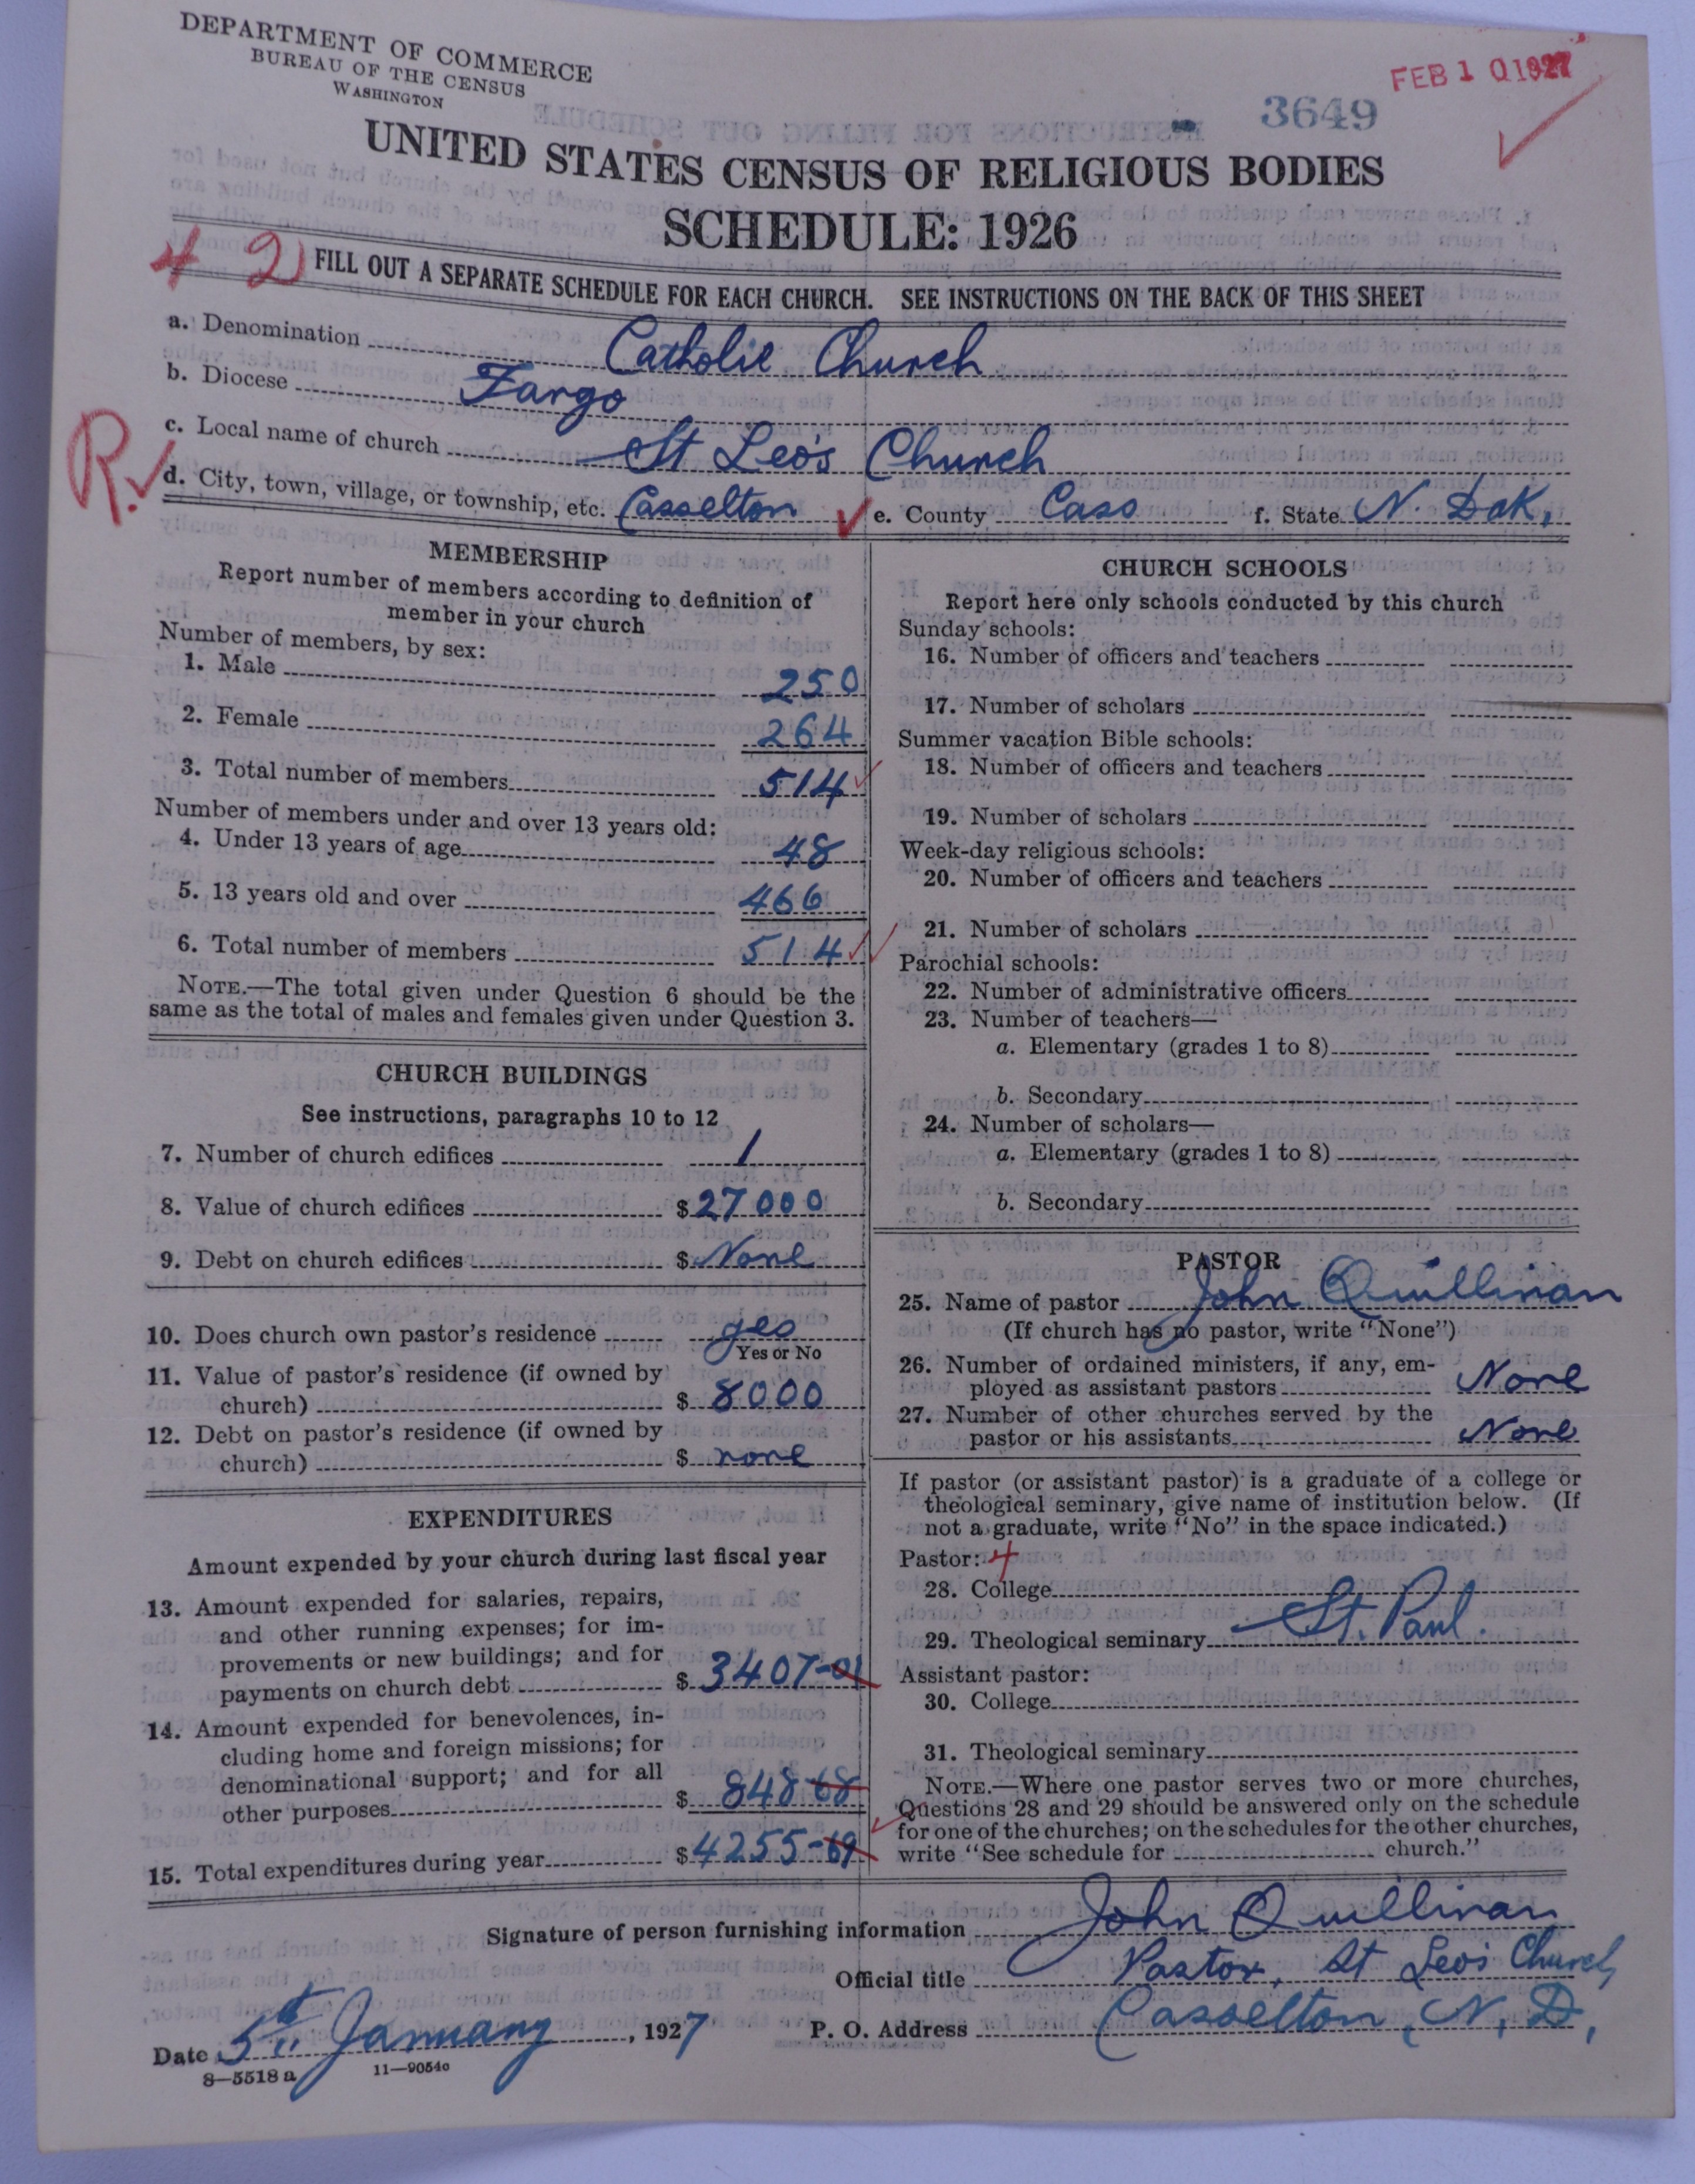 DEPARTMENT OF COMMERCE
BUREAU OF THE CENSUS
WASHINGTON
FEB 10 1927
3649
UNITED STATES CENSUS OF RELIGIOUS BODIES
SCHEDULE: 1926
4 2)
FILL OUT A SEPARATE SCHEDULE FOR EACH CHURCH. SEE INSTRUCTIONS ON THE BACK OF THIS SHEET
a. Denomination Catholic Church
b. Diocese Fargo
c. Local name of church St Leo's Church
R.
d. City, town, village, or township, etc. Casselton e. County Cass f. State N. Dak,
MEMBERSHIP
Report number of members according to definition of
member in your church
Number of members, by sex:
1. Male 250
2. Female 264
3. Total number of members 514
Number of members under and over 13 years old:
4. Under 13 years of age 48
5. 13 years old and over 466
6. Total number of members 514
NOTE.—The total given under Question 6 should be the
same as the total of males and females given under Question 3.
CHURCH BUILDINGS
See instructions, paragraphs 10 to 12
7. Number of church edifices 1
8. Value of church edifices $27000
9. Debt on church edifices $None
10. Does church own pastor's residence yes
Yes or No
11. Value of pastor's residence (if owned by
church) $ 8000
12. Debt on pastor's residence (if owned by
church) $ none
EXPENDITURES
Amount expended by your church during last fiscal year
13. Amount expended for salaries, repairs,
and other running expenses; for im-
provements or new buildings; and for
payments on church debt $ 3407-01
14. Amount expended for benevolences, in-
cluding home and foreign missions; for
denominational support; and for all
other purposes $ 848-68
15. Total expenditures during year $4255-69
CHURCH SCHOOLS
Report here only schools conducted by this church
Sunday schools:
16. Number of officers and teachers
17. Number of scholars
Summer vacation Bible schools:
18. Number of officers and teachers
19. Number of scholars
Week-day religious schools:
20. Number of officers and teachers
21. Number of scholars
Parochial schools:
22. Number of administrative officers
23. Number of teachers—
a. Elementary (grades 1 to 8)
b. Secondary
24. Number of scholars—
a. Elementary (grades 1 to 8)
b. Secondary
PASTOR
25. Name of pastor John Quillinan
(If church has no pastor, write "None")
26. Number of ordained ministers, if any, em-
ployed as assistant pastors None
27. Number of other churches served by the
pastor or his assistants None
If pastor (or assistant pastor) is a graduate of a college or
theological seminary, give name of institution below. (If
not a graduate, write "No" in the space indicated.)
Pastor: 4
28. College
29. Theological seminary St. Paul.
Assistant pastor:
30. College
31. Theological seminary
NOTE.—Where one pastor serves two or more churches,
Questions 28 and 29 should be answered only on the schedule
for one of the churches; on the schedules for the other churches,
write "See schedule for church."
Signature of person furnishing information John Quillinan
Official title Pastor, St Leo's Church,
Date 5th January, 1927 P. O. Address Casselton, N. D,
8—5518 a 11—9054c